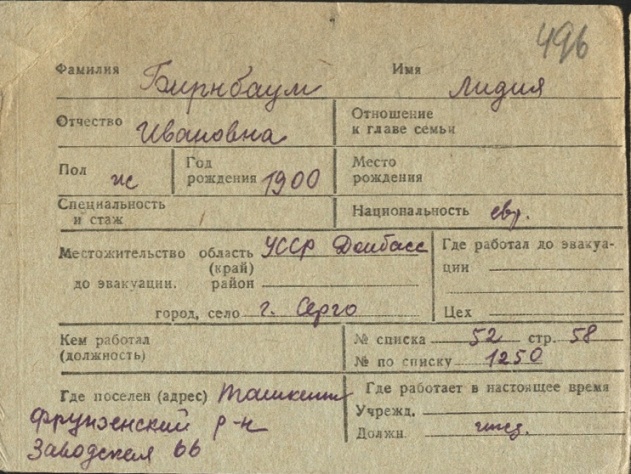 496
Фамилия Бирнбаум Имя Лидия
Отчество Ивановна Отношение к главе семьи
Пол ж Год рождения 1900 Место рождения
Специальность и стаж Национальность евр.
Местожительство область УССР Донбасс Где работал до эвакуа-
(край) ции
до эвакуации. район
город, село г. Серго Цех
Кем работал № списка 52 стр. 58
(должность) № по списку 1250
Где поселен (адрес) Ташкент Где работает в настоящее время
Фрунзенский р-н Учрежд.
Заводская 66 Должн. ижд.